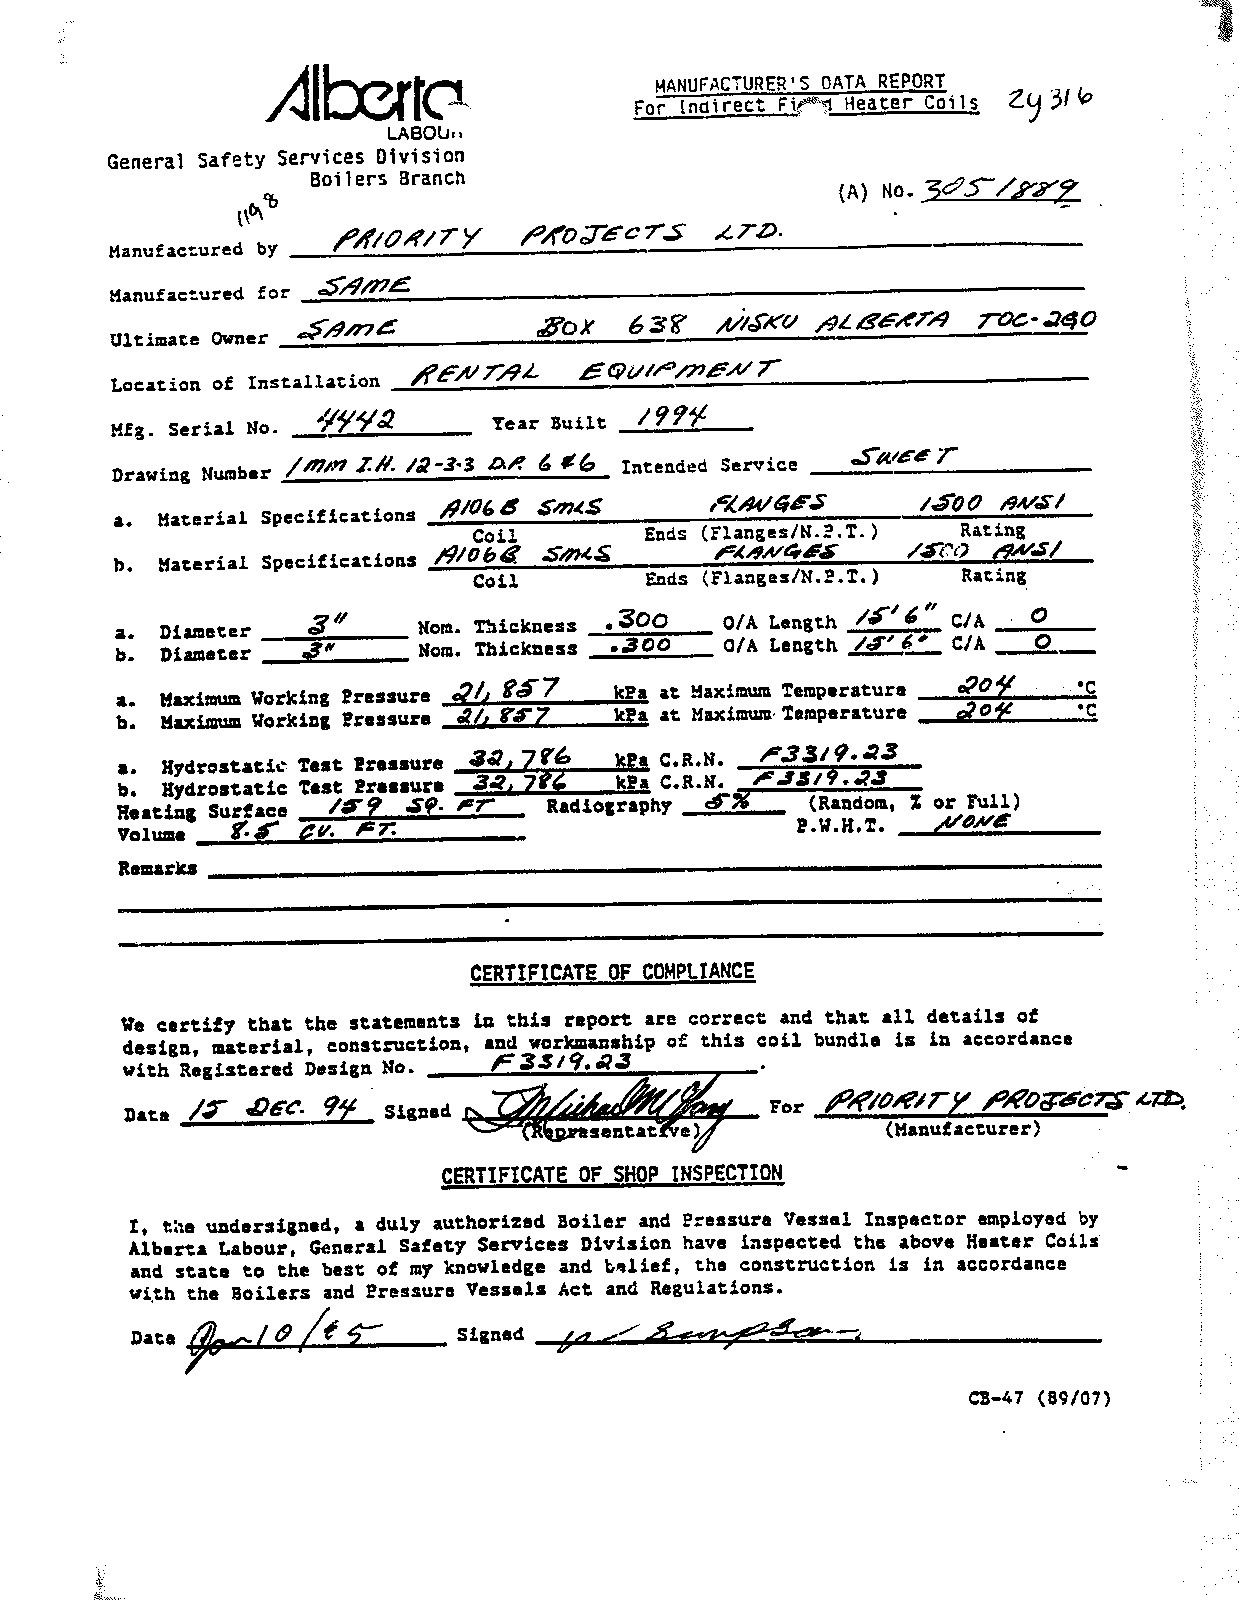 Alberta
LABOUR
General Safety Services Division
Boilers Branch
MANUFACTURER'S DATA REPORT
For Indirect Fired Heater Coils 2y316
(A) No. 3051889
1198
Manufactured by PRIORITY PROJECTS LTD.
Manufactured for SAME
Ultimate Owner SAME BOX 638 NISKU ALBERTA TOC-2G0
Location of Installation RENTAL EQUIPMENT
Mfg. Serial No. 4442 Year Built 1994
Drawing Number 1mm I.H. 12-3-3 D.P. 6 & 6 Intended Service SWEET
a. Material Specifications A106B SMLS FLANGES 1500 ANSI
Coil Ends (Flanges/N.P.T.) Rating
b. Material Specifications A106B SMLS FLANGES 1500 ANSI
Coil Ends (Flanges/N.P.T.) Rating
a. Diameter 3" Nom. Thickness .300 O/A Length 15'6" C/A 0
b. Diameter 3" Nom. Thickness .300 O/A Length 15'6" C/A 0
a. Maximum Working Pressure 21,857 kPa at Maximum Temperature 204 °C
b. Maximum Working Pressure 21,857 kPa at Maximum Temperature 204 °C
a. Hydrostatic Test Pressure 32,786 kPa C.R.N. F3319.23
b. Hydrostatic Test Pressure 32,786 kPa C.R.N. F3319.23
Heating Surface 159 SQ. FT Radiography 5% (Random, % or Full)
Volume 8.5 CU. FT. P.W.H.T. NONE
Remarks
CERTIFICATE OF COMPLIANCE
We certify that the statements in this report are correct and that all details of
design, material, construction, and workmanship of this coil bundle is in accordance
with Registered Design No. F3319.23.
Date 15 DEC. 94 Signed For PRIORITY PROJECTS LTD.
(Representative) (Manufacturer)
CERTIFICATE OF SHOP INSPECTION
I, the undersigned, a duly authorized Boiler and Pressure Vessel Inspector employed by
Alberta Labour, General Safety Services Division have inspected the above Heater Coils
and state to the best of my knowledge and belief, the construction is in accordance
with the Boilers and Pressure Vessels Act and Regulations.
Date Signed
CB-47 (89/07)